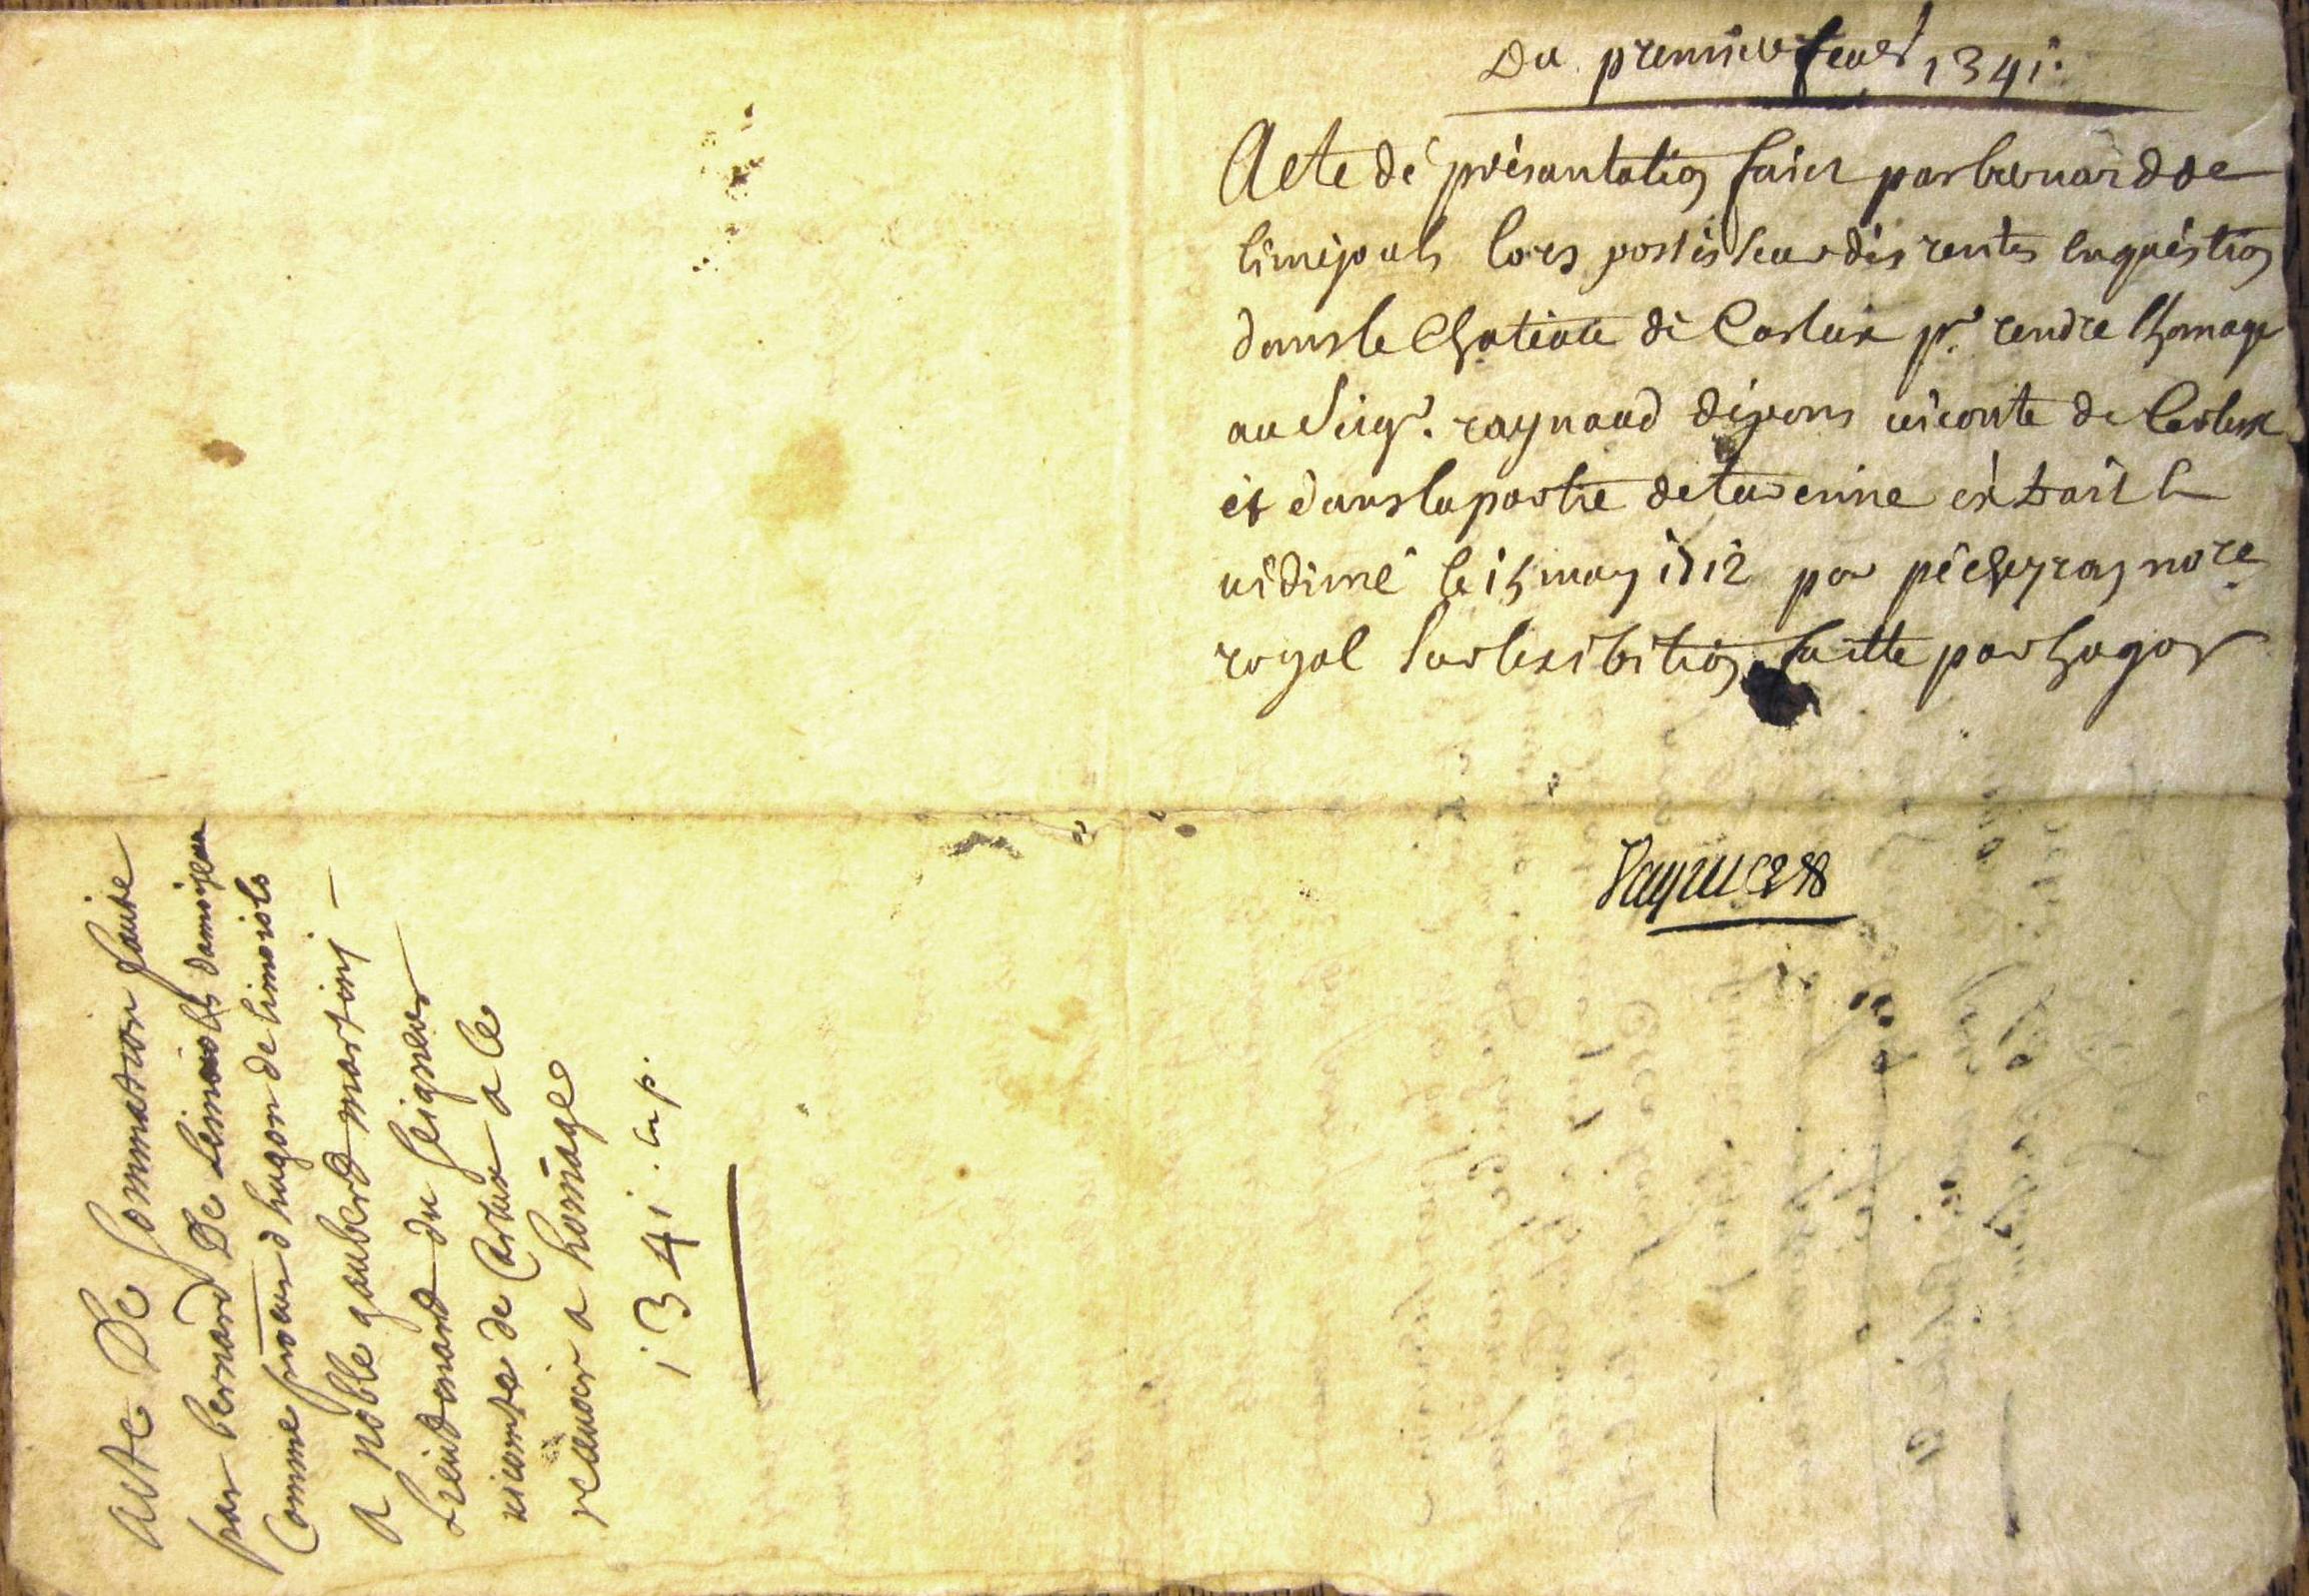 Du premier feur 1341.
Acte de présantation faict par bernard de
limejouls lors possesseur des rentes en question
dans le Chatiate de Carlux pr. rendre lhomage
au Seigr. raynaud de pons viconte de Carlux
et dans la partie de turenne extrait
vidimé le 15 may 1512 par pecheyran nore
royal sur lexibition faitte par hugon
acte De Sommation faite
par bernard De Limiols damoizeau
Comme procur d hugon de limiols
a noble gauberd martins
Lieutenand du seigneur
viconte de Carlux a le
recevoir a homage
1341